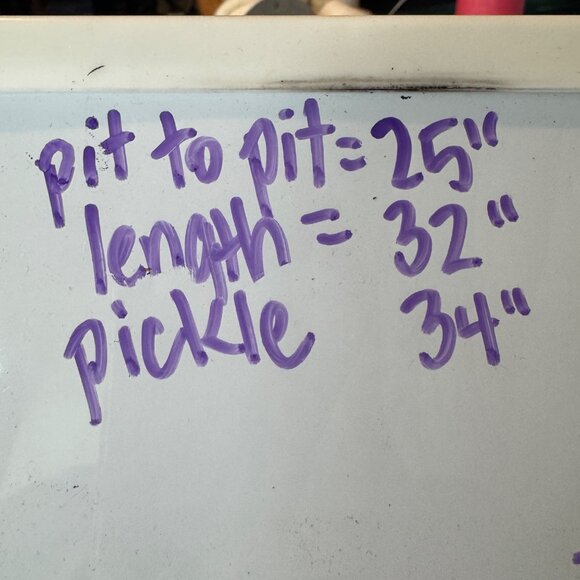 pit to pit = 25"
length = 32"
pickle 34"